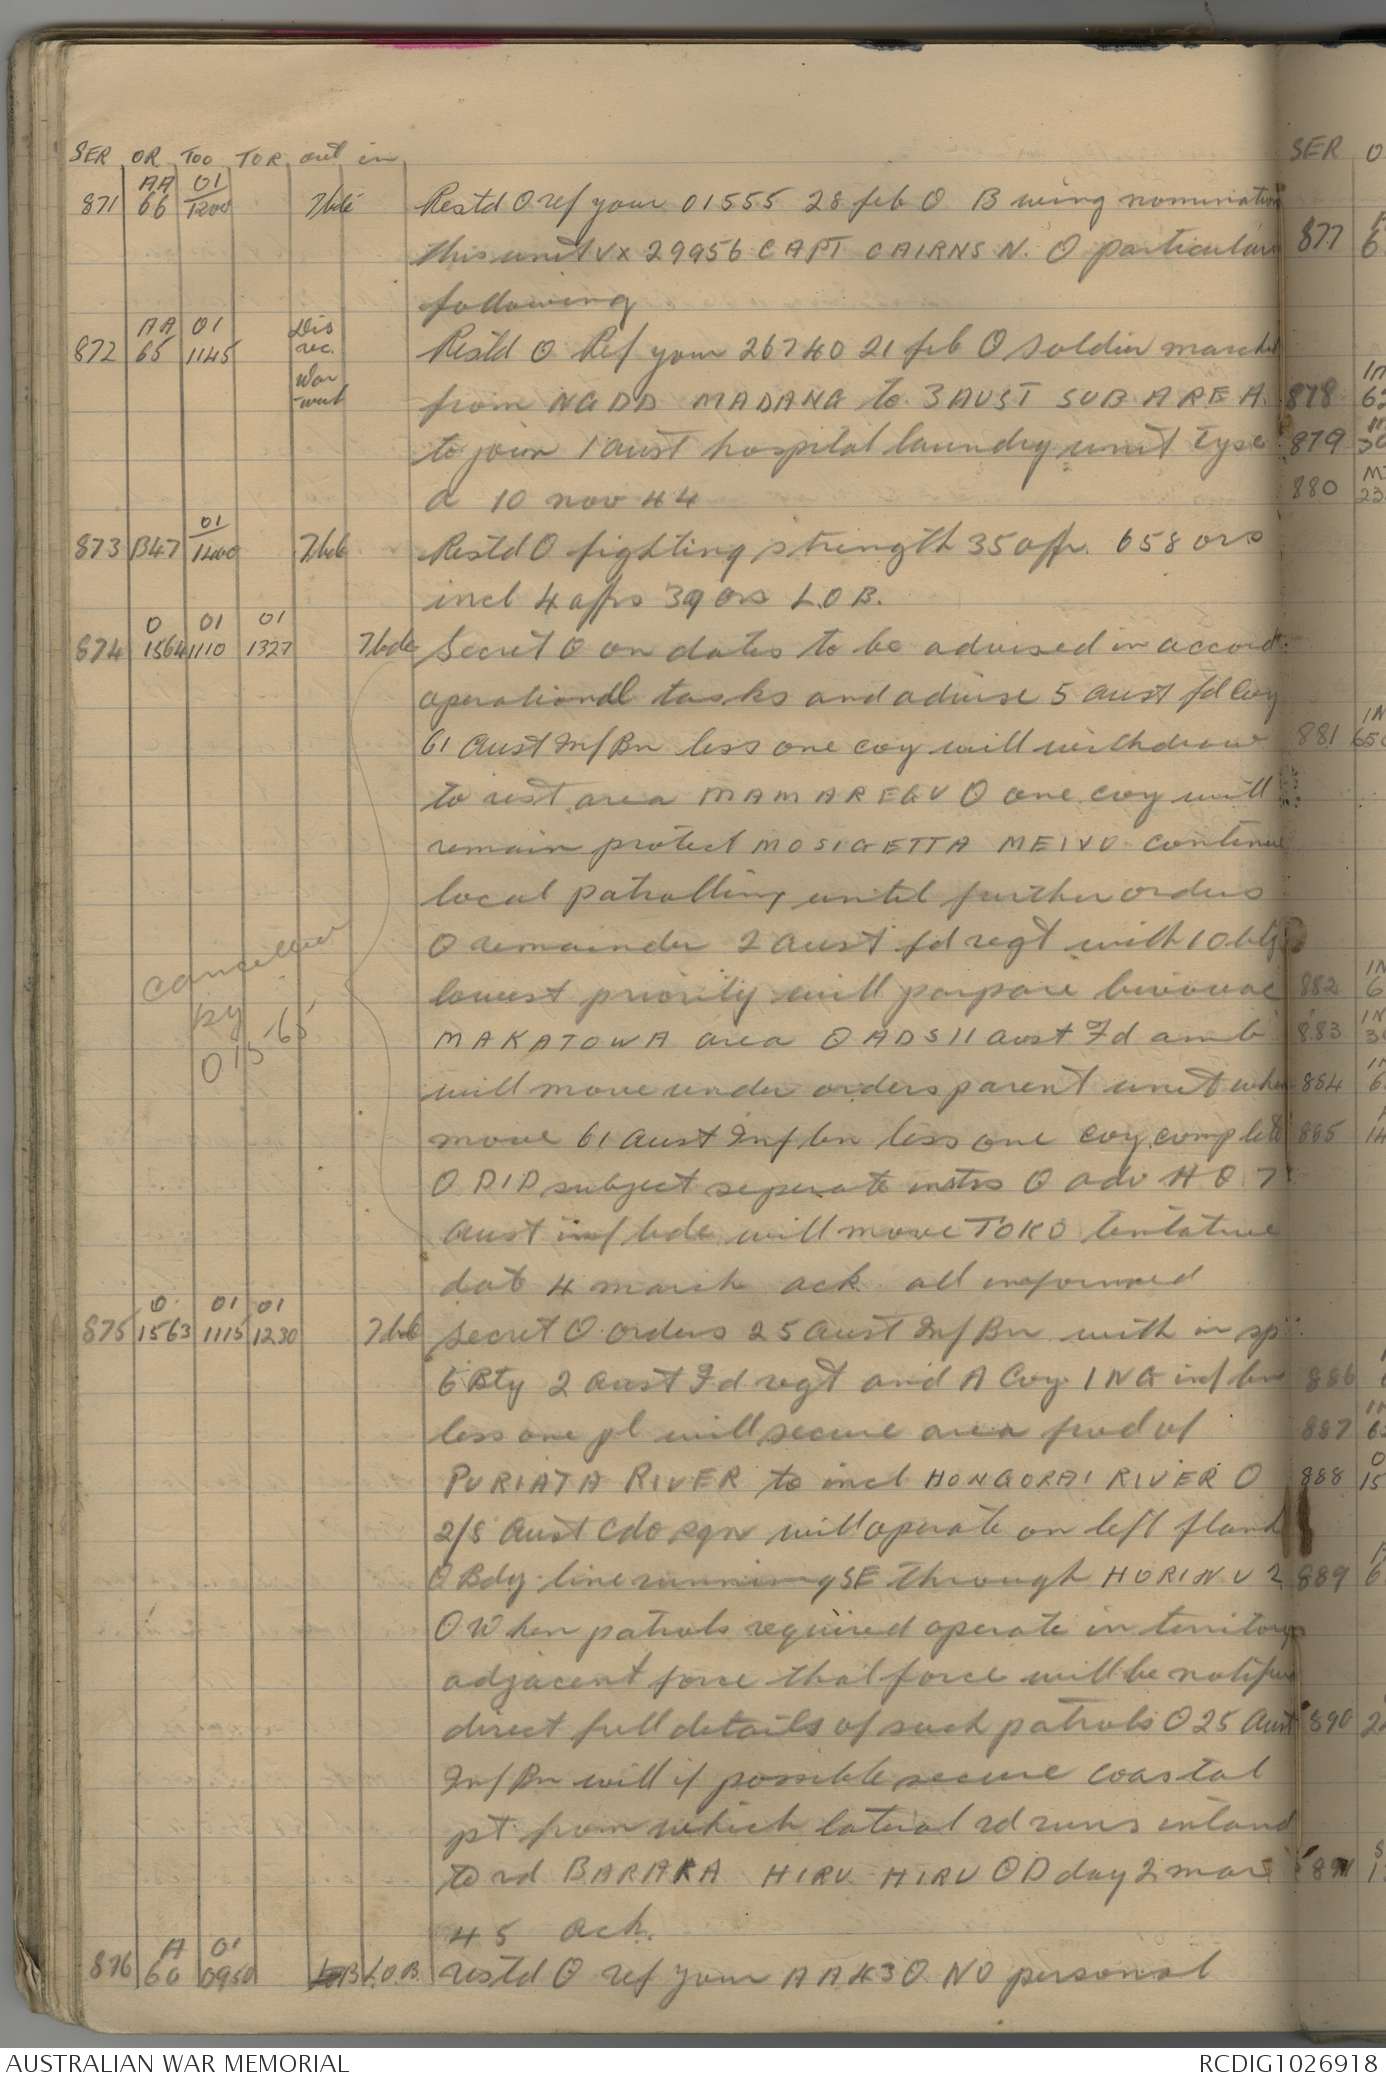 SER OR TOO TOR out in
871 AA 66 01 1200 7 bde Restd O ref your 01555 28 feb O B wing nomination
this unit VX 29956 CAPT CAIRNS N. O particulars
following
872 AA 65 01 1145 Dis rec. War-wick Restd O Ref your 26740 21 feb O soldier marched
from NGDD MADANG to 3 AUST SUB AREA
to join 1 aust hospital laundry unit
a 10 nov 44
873 B47 01 1400 7 bde Restd O fighting strength 35 offr. 658 ors
incl 4 offrs 39 ors L.O.B.
874 O 1564 01 1110 01 1327 7 bde Secret O on dates to be advised in accord.
operational tasks and advise 5 aust fd Coy
61 Aust Inf Bn less one coy will withdraw
to rest area MAMAREGU O one coy will
remain protect MOSIGETTA MEIVO continue
local patrolling until further orders
O remainder 2 aust fd regt with 10 bty
lowest priority will prepare bivouac
MAKATOWA area O ADS 11 aust Fd amb
will move under orders parent unit when
move 61 Aust Inf bn less one coy complete
O DID subject seperate instrs O adv HQ 7
aust inf bde will move TOKO tentative
date 4 march ack all informed
cancelled
by
O 1565
875 O 1563 01 1115 01 1230 7 bde Secret O orders 25 Aust Inf Bn with in sp
6 Bty 2 aust Fd regt and A Coy 1 NG inf bn
less one pl will secure area fwd of
PURIATA RIVER to incl HONGORAI RIVER O
2/8 Aust Cdo sqn will operate on left flank
O Bdy line running SE through HORINU 2
O When patrols required operate in territory
adjacent force that force will be notified
direct full details of such patrols O 25 Aust
Inf Bn will if possible secure coastal
pt from which lateral rd runs inland
to rd BARARA HIRU HIRU O D day 2 mar
45 ack.
876 A 60 01 0950 L.O.B. restd O ref your AA430 NO personal
SER O
877 6
878 62
879
880 23
881
882 6
883
884 6
885 14
886
887
888 O 15
889 6
890
891
AUSTRALIAN WAR MEMORIAL RCDIG1026918